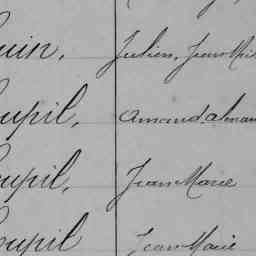 uin, Julien, Jean Mari
oupil, Amand, Aman
oupil, Jean Marie
oupil Jean Marie